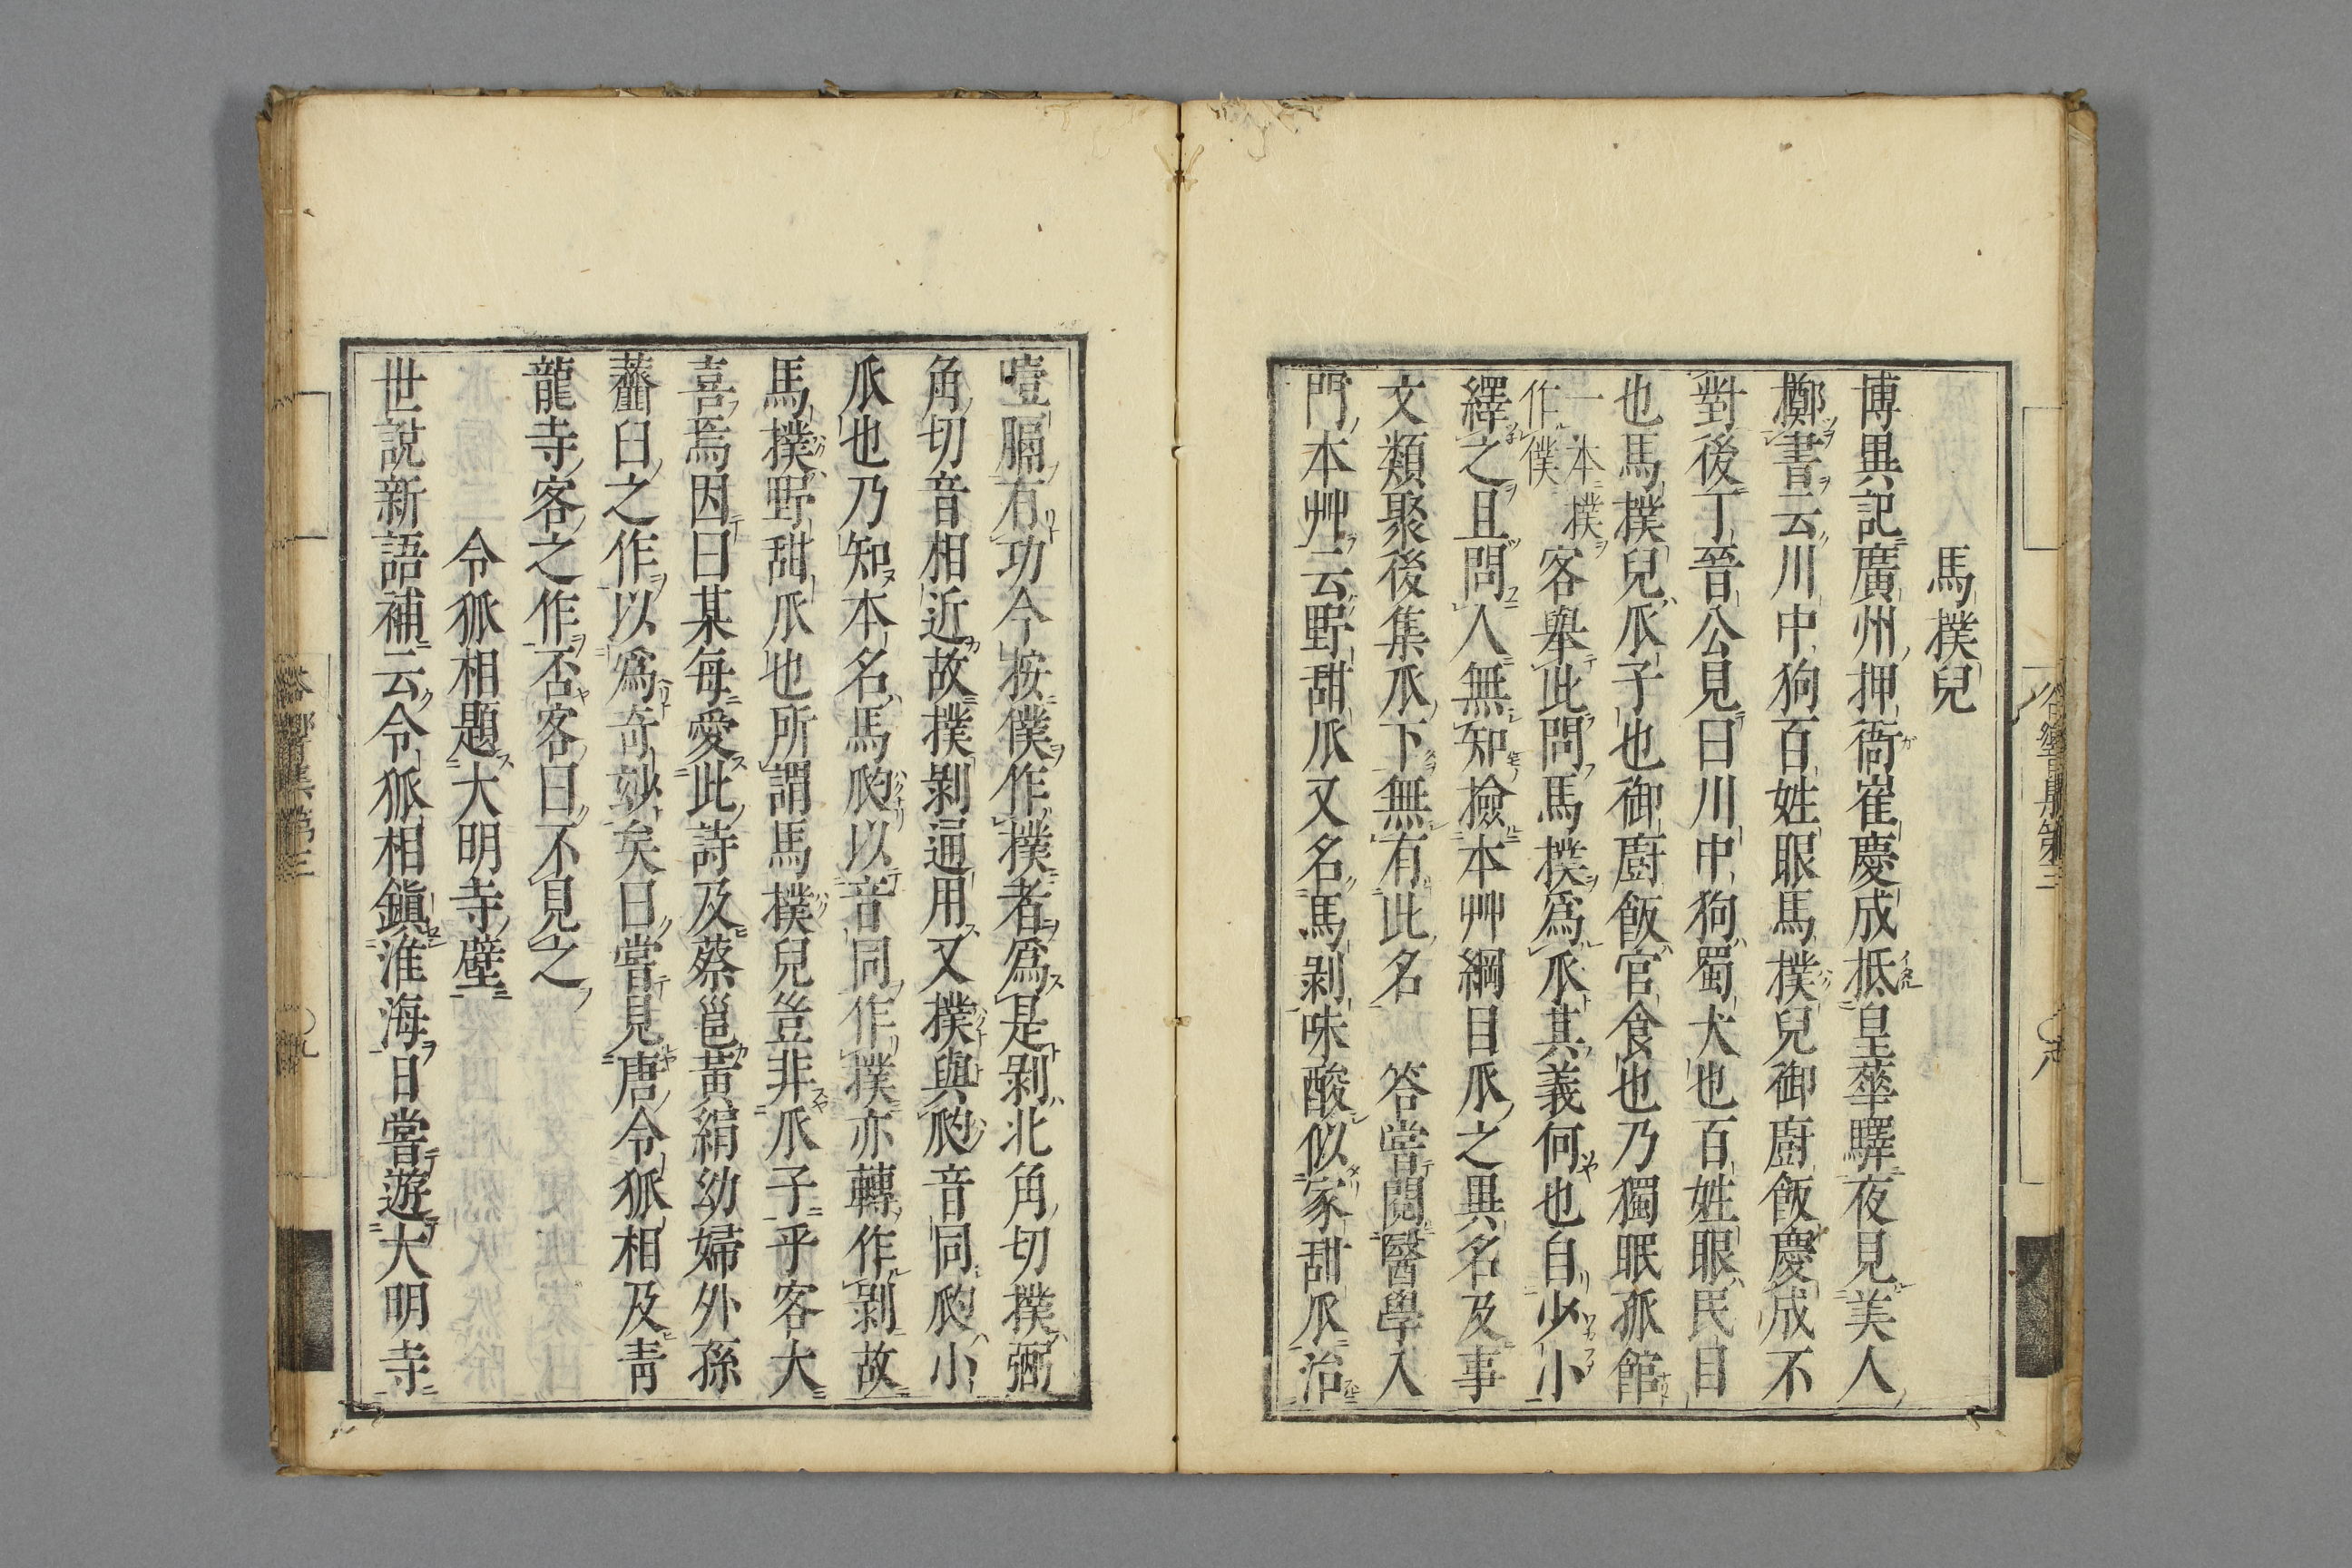 馬撲兒
博異記廣州押衙崔慶成抵皇華驛夜見美人
擲書云川中狗百姓眼馬撲兒御廚飯慶成不
對後丁晉公見曰川中狗蜀犬也百姓眼民目
也馬撲兒瓜子也御廚飯官食也乃獨眠孤館
一本撲
作僕
客舉此問馬撲爲瓜其義何也自少小
繹之且問人無知撿本艸綱目瓜之異名及事
文類聚後集瓜下無有此名 答嘗閱醫學入
門本艸云野甜瓜又名馬剝味酸似家甜瓜治
噎膈有功今按僕作撲者爲是剝北角切撲弼
角切音相近故撲剝通用又撲與瓝音同瓝小
瓜也乃知本名馬瓝以音同作撲亦轉作剝故
馬撲野甜瓜也所謂馬撲兒豈非瓜子乎客大
喜焉因曰某每愛此詩及蔡邕黃絹幼婦外孫
虀臼之作以爲奇妙矣曰嘗見唐令狐相及靑
龍寺客之作否客曰不見之
令狐相題大明寺壁
世說新語補云令狐相鎭淮海日嘗遊大明寺
谷響集第三
〇九